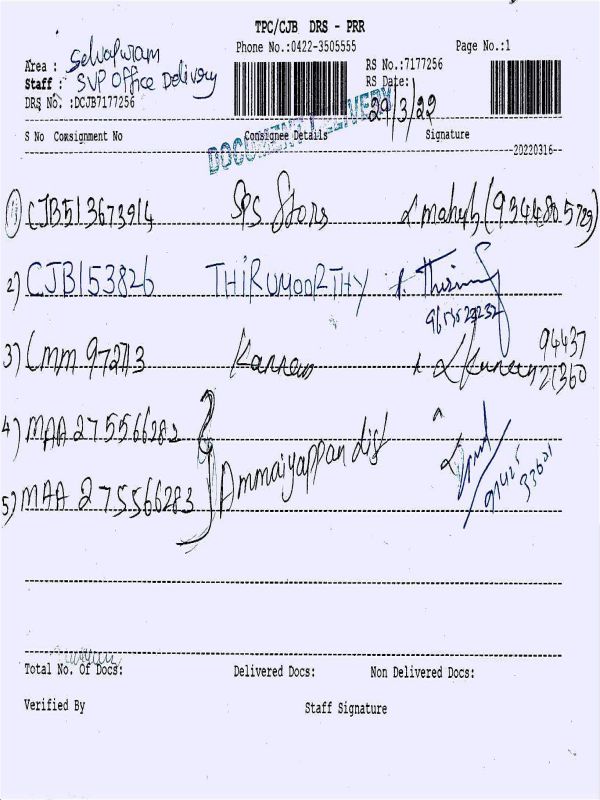 TPC/CJB DRS - PRR
Phone No.:0422-3505555 Page No.:1
Area : Selvapuram
Staff : SVP Office Delivery
RS No.:7177256
RS Date: 29/3/22
DRS No. :DCJB7177256
DOCUMENT DELIVERY
S No Consignment No Consignee Details Signature
20220316
1) CJB513673914 SPS Stores (9344805729)
2) CJB153826 THIRUMOORTHY
3) CMM 972713 Kannan 94437 21360
4) MAA 275566282
Ammaiyappan dist
5) MAA 275566283
Total No. Of Docs: Delivered Docs: Non Delivered Docs:
Verified By Staff Signature